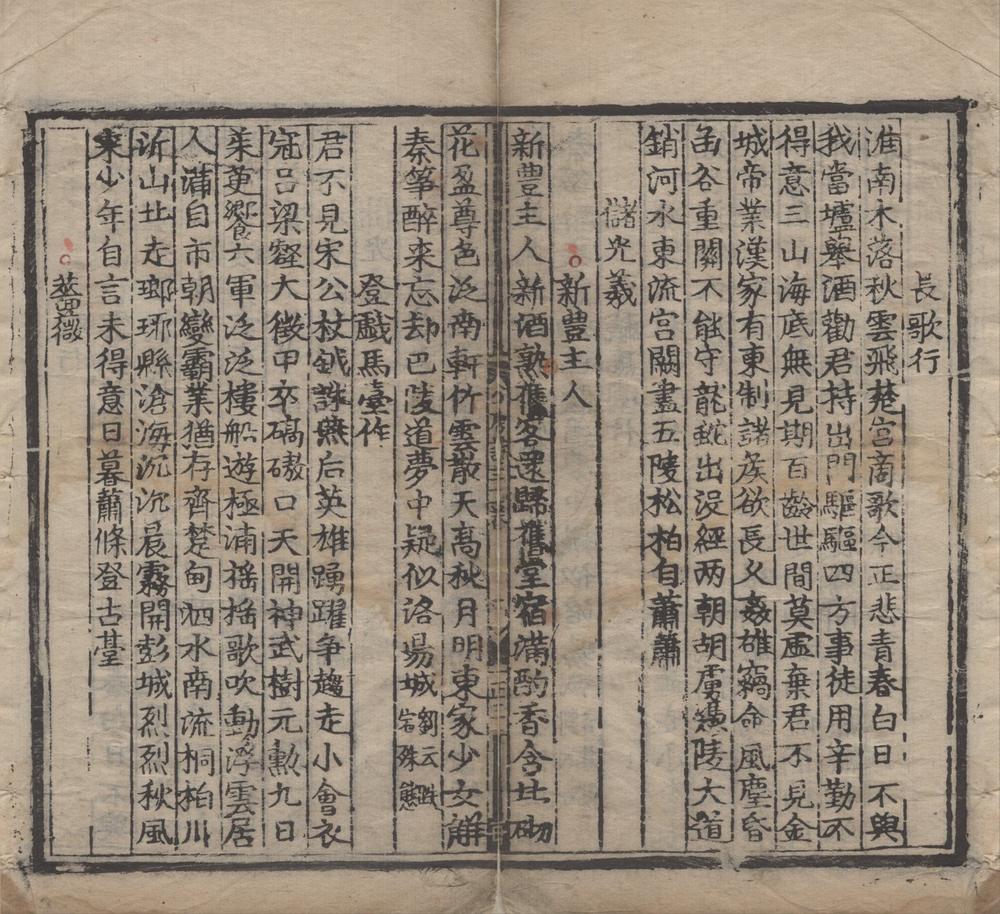 長歌行
淮南木落秋雲飛楚宫商歌今正悲青春白日不與
我當壚舉酒勸君持出門驅驅四方事徒用辛勤不
得意三山海底無見期百齡世間莫虛棄君不見金
城帝業漢家有東制諸侯欲長乆姦雄竊命風塵昏
函谷重關不能守龍蛇出沒經两朝胡虜憑陵大道
銷河水東流宫闕盡五陵松柏自蕭蕭
儲光羲
新豐主人
新豐主人新酒熟舊客還歸舊堂宿滿酌香含北砌
花盈尊色泛南軒竹雲散天髙秋月明東家少女解
秦箏醉来忘却巴陵道夢中疑似洛陽城劉云
登戱馬臺作
君不見宋公杖鉞誅燕后英雄踴躍争趨走小會衣
冠吕梁壑大徵甲卒碻磝口天開神武樹元勲九日
茱萸饗六軍泛泛樓船遊極浦摇摇歌吹動浮雲居
人滿自市朝變霸業猶存齊楚甸泗水南流桐柏川
沂山北走瑯琊縣滄海沉沉晨霧開彭城烈烈秋風
来少年自言未得意日暮蕭條登古臺